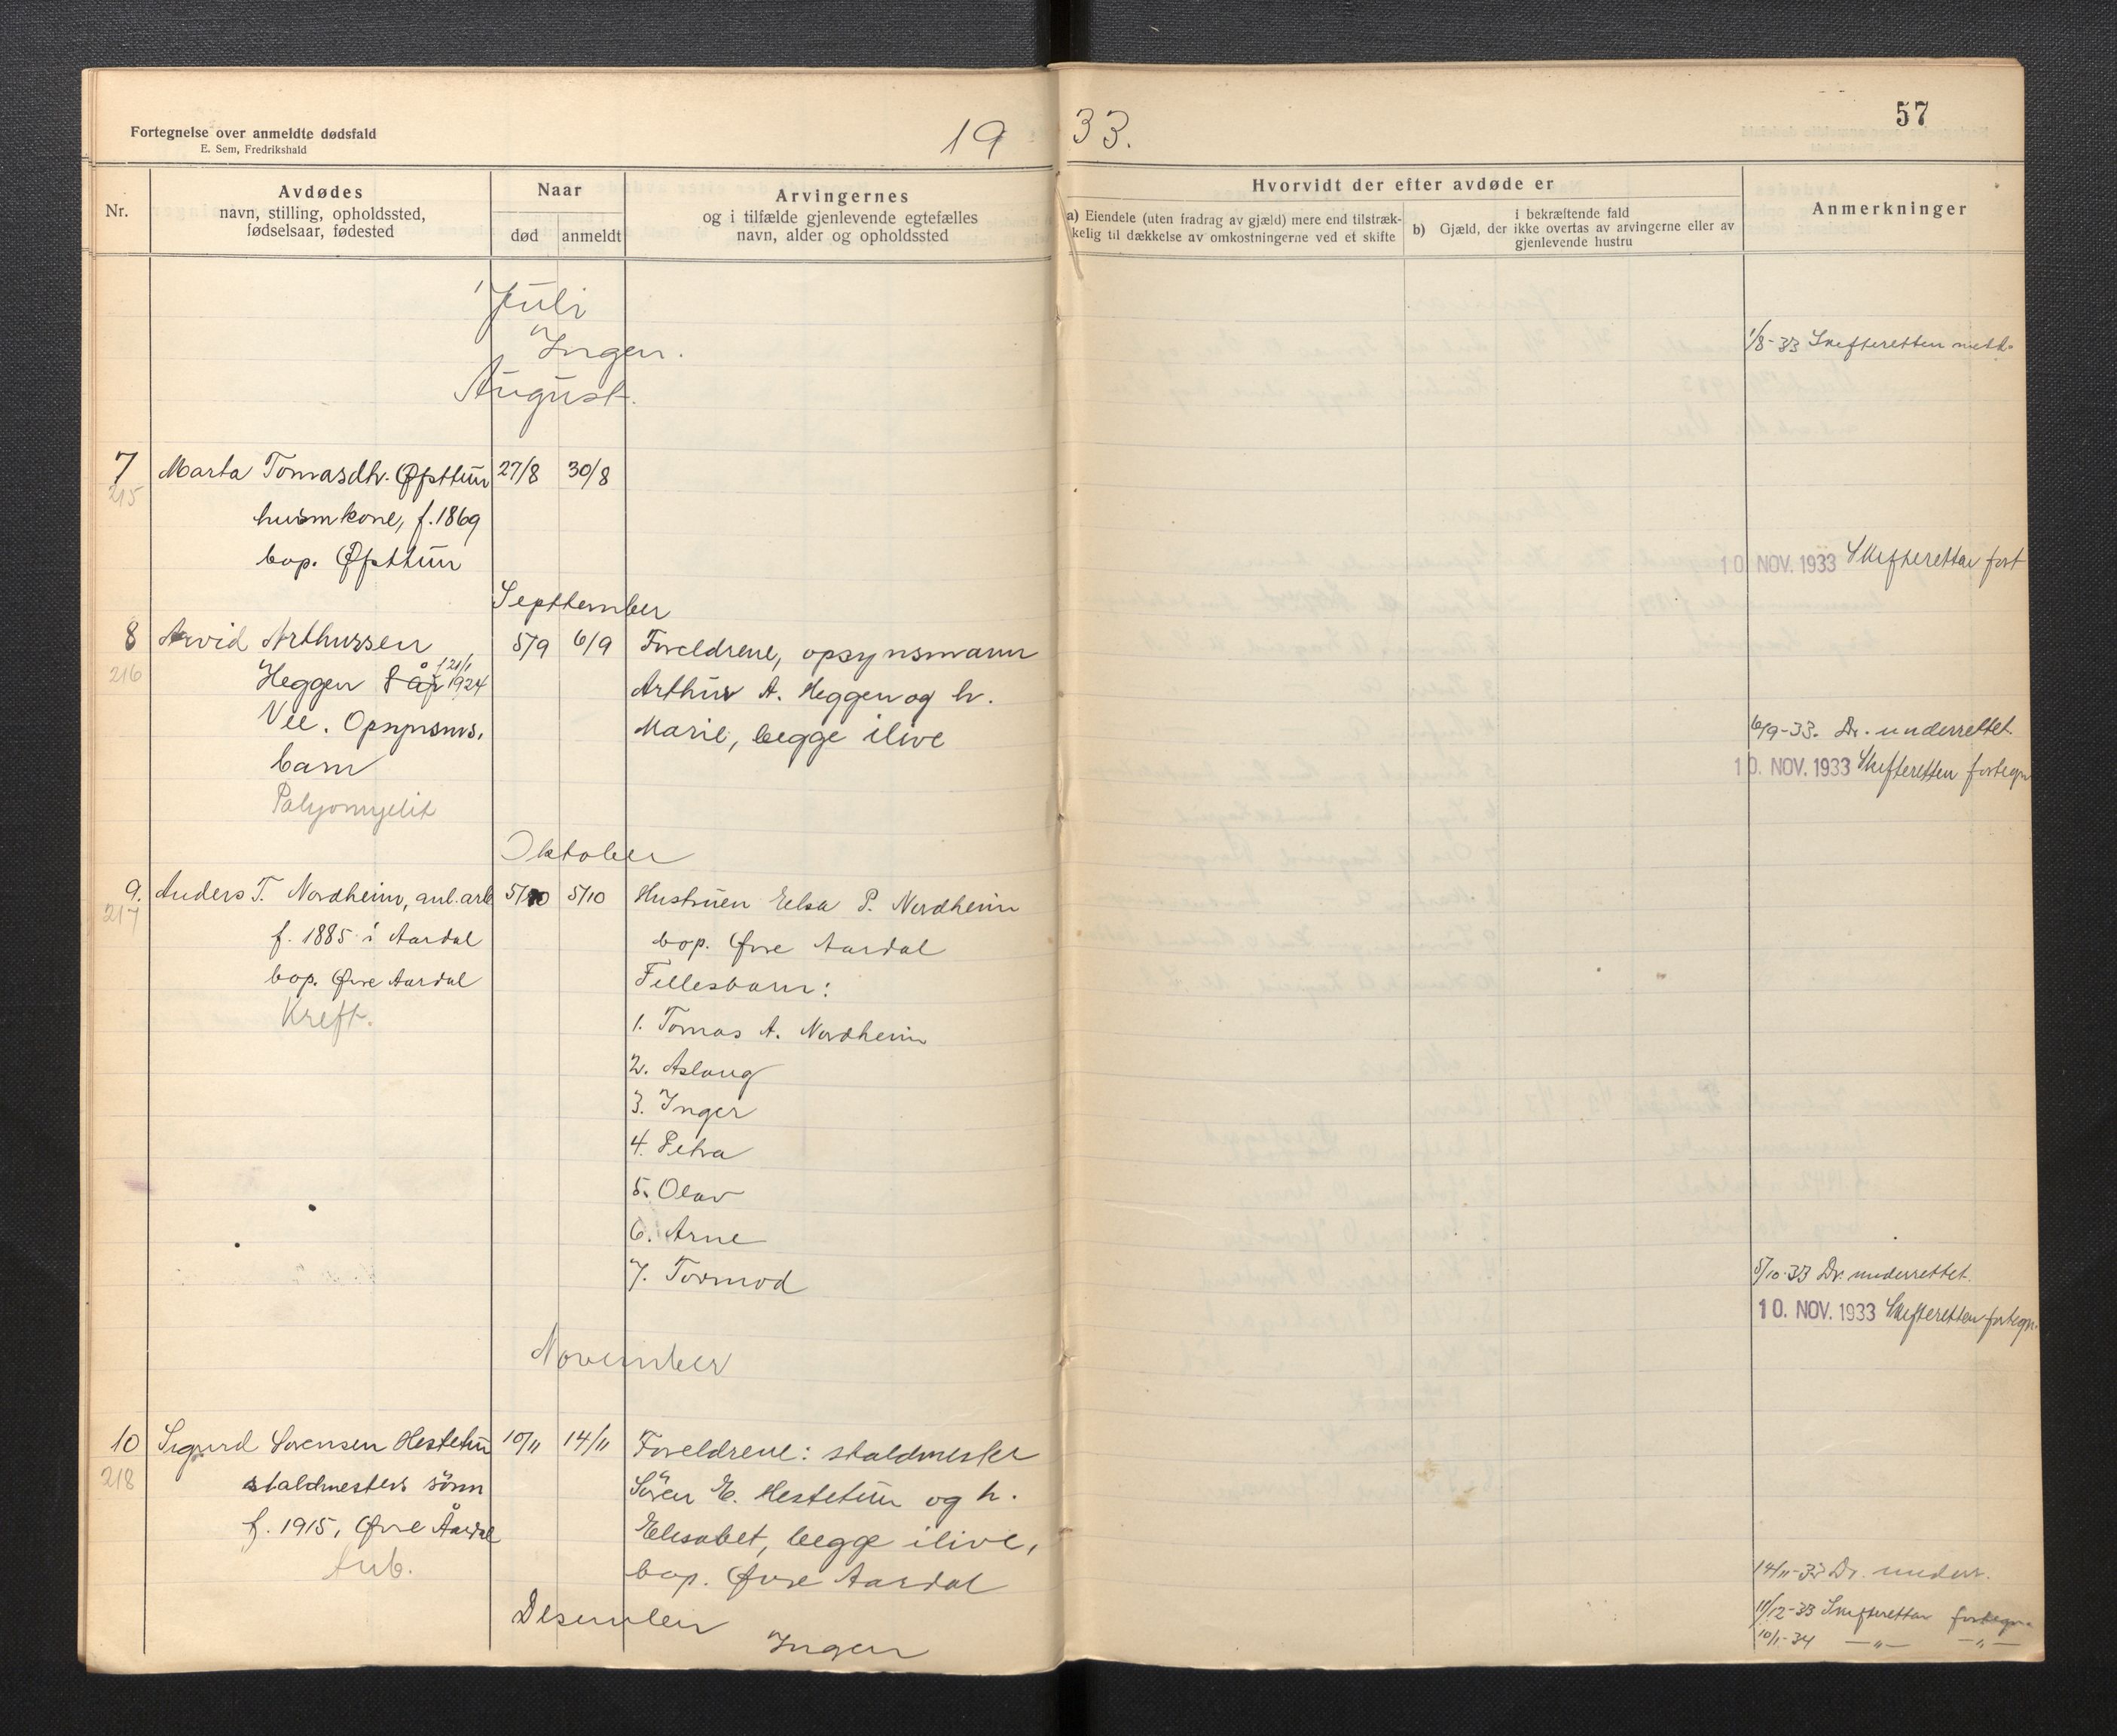 Fortegnelse over anmeldte dødsfald
E. Sem, Fredrikshald
19 33.
57
Nr.
Avdødes
navn, stilling, opholdssted,
fødselsaar, fødested
Naar
død
anmeldt
Arvingernes
og i tilfælde gjenlevende egtefælles
navn, alder og opholdssted
Hvorvidt der efter avdøde er
a) Eiendele (uten fradrag av gjæld) mere end tilstræk-
kelig til dækkelse av omkostningerne ved et skifte
i bekræftende fald
b) Gjæld, der ikke overtas av arvingerne eller av
gjenlevende hustru
Anmerkninger
Juli
Ingen.
1/8-33 Skifteretten medd.
August.
7 Marta Tomasdtr. Øfsttun 27/8 30/8
215
husmkone, f. 1869
bop. Øfsttun
10. NOV. 1933 Skifteretten fort
Septtember
8 Arvid Arthurssen 5/9 6/9 Foreldrene, opsynsmann
216
Heggen 8 år f 21/1 1924 Arthur A. Heggen og h.
Vee. Opsynsms. Marie, begge ilive
6/9-33. Dr. underrettet.
barn
10. NOV. 1933 Skifteretten fortegn
Polyomyelit
Oktober
9. Anders T. Nordheim, anl.arb 5/10 5/10 Hustruen Elsa P. Nordheim
217
f. 1885 i Aardal bop. Øvre Aardal
bop. Øvre Aardal Fellesbarn:
Kreft.
1. Tomas A. Nordheim
2. Aslaug
3. Inger
4. Petra
5. Olav
6. Arne
7. Tormod
5/10-33 Dr. underrettet.
10. NOV. 1933 Skifteretten fortegn.
November
10 Sigurd Sørensen Hestetun 10/11 14/11 Foreldrene: staldmester
218
staldmesters sønn Søren E. Hestetun og h.
f. 1915, Øvre Årdal Elisabet, begge ilive,
Tub. bop. Øvre Aardal
14/11-33 Dr. underr.
Desember
11/12-33 Skifteretten fortegn.
Ingen
10/1-34 —"— —"—